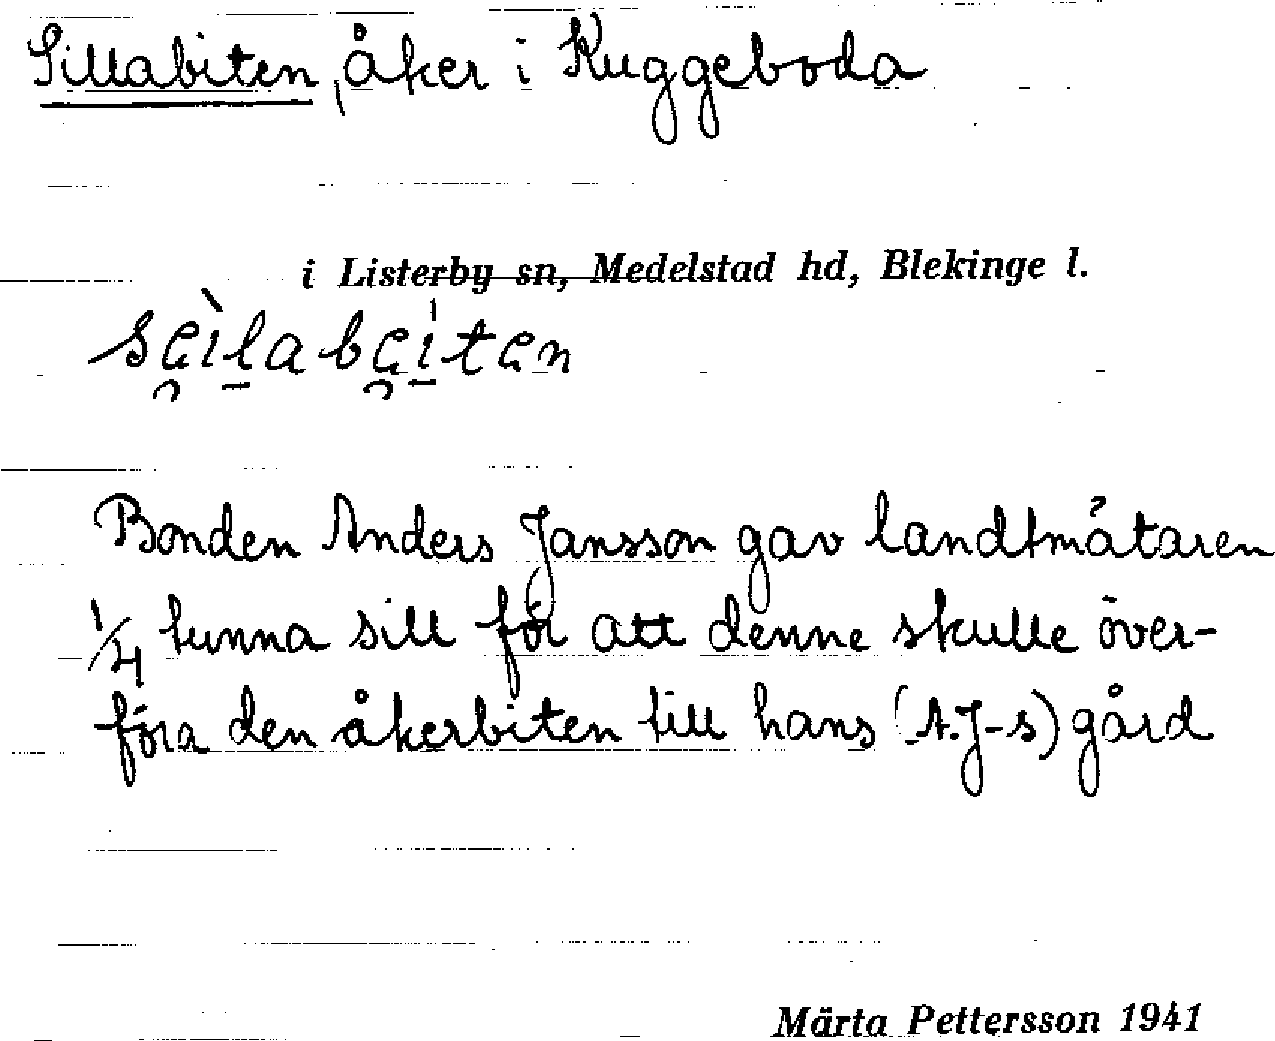 Sillabiten, åker i Kuggeboda
i Listerby sn, Medelstad hd, Blekinge l.
seì̯l̠abeí̯ten
Bonden Anders Jansson gav landtmätaren
1/4 tunna sill för att denne skulle över-
föra den åkerbiten till hans (A.J-s) gård
Märta Pettersson 1941